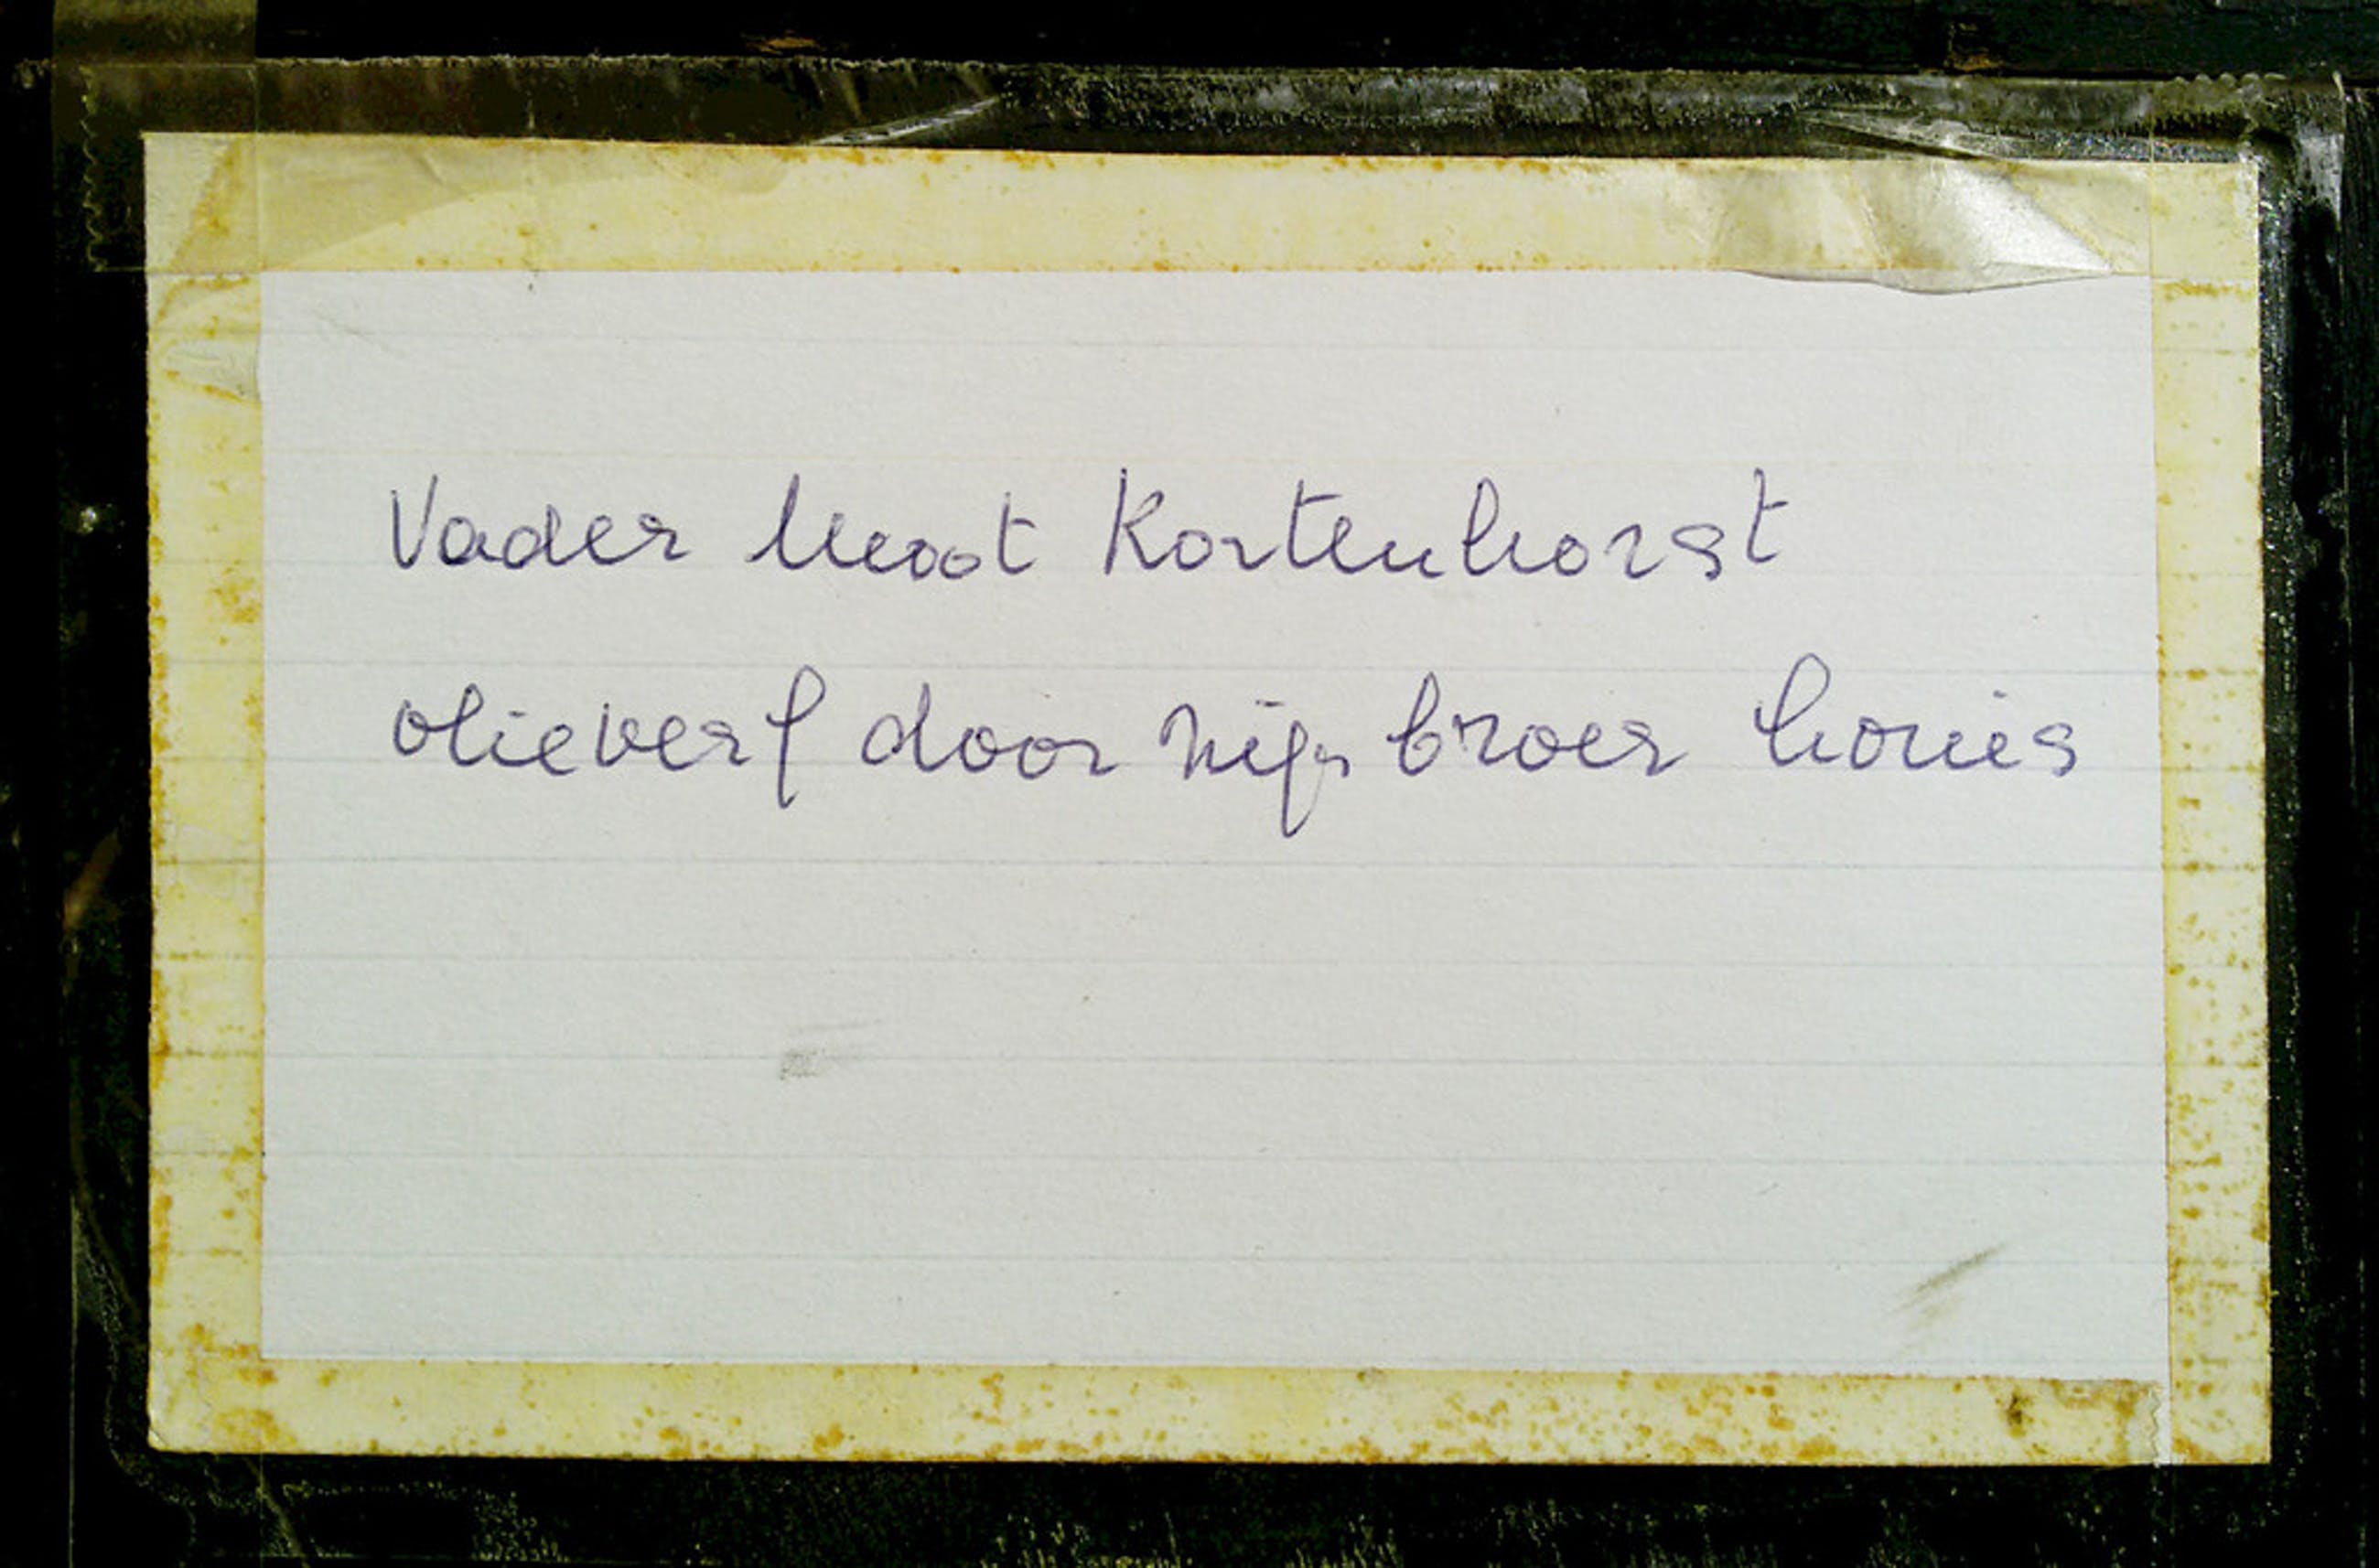 Vader Kortenhorst
olieverf door zijn broer Louis